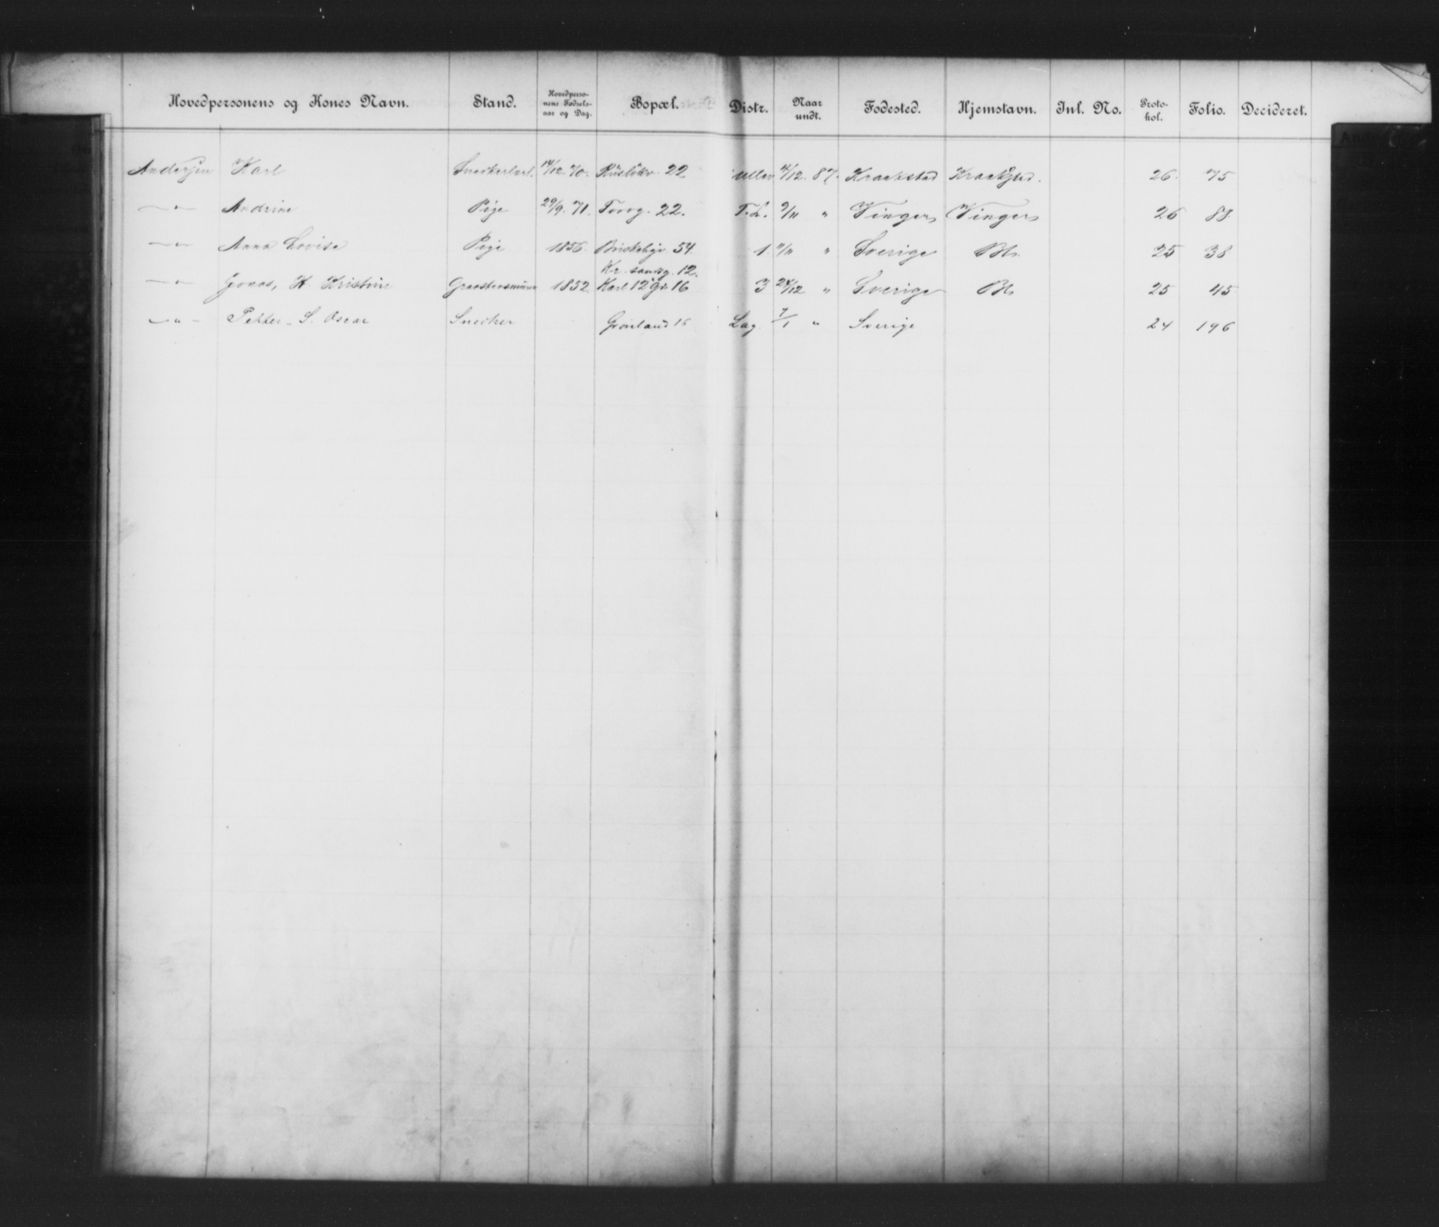 Hovedpersonens og Kones Navn. Stand. Hovedperso-nens Fødsels-aar og Dag. Bopæl. Distr. Naar undt. Fødested. Hjemstavn. Inl. No. Proto-kol. Folio. Decideret.
Andersen Karl Snedkerlærl. 14/12 70. 22 /12 87. Kraakstad Kraakstad. 26. 75
—"— Andrine Pige 29/9. 71. Torvg. 22. T.L. 9/11 " Vinger Vinger 26 88
—"— Anna Lovise Pige 1856. Briskebyv 54 1 9/11 " Sverige 25 38
Kr. 12.
—"— Jonas, H. Kristine 1852 Karl 12 Gd. 16 3 24/12 " Sverige 25 45
—"— Petter S. Oscar Snedker Grønland 16 Lag 7/1 " Sverige 24 196